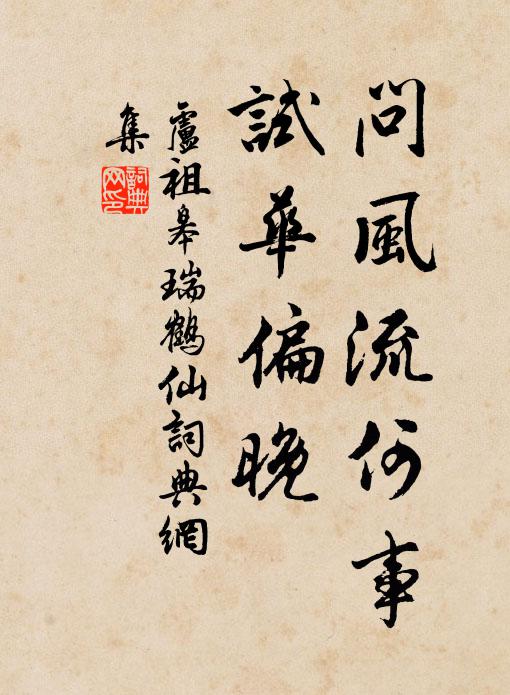 問風流何事
試華偏晚
盧祖皋瑞鶴仙詞典網
集
詞典
网印